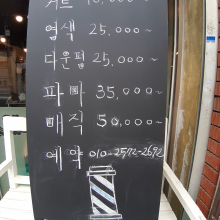 커트
염색 25,000~
다운펌 25,000~
파마 35,000~
매직 50,000~
예약 010-2572-2672